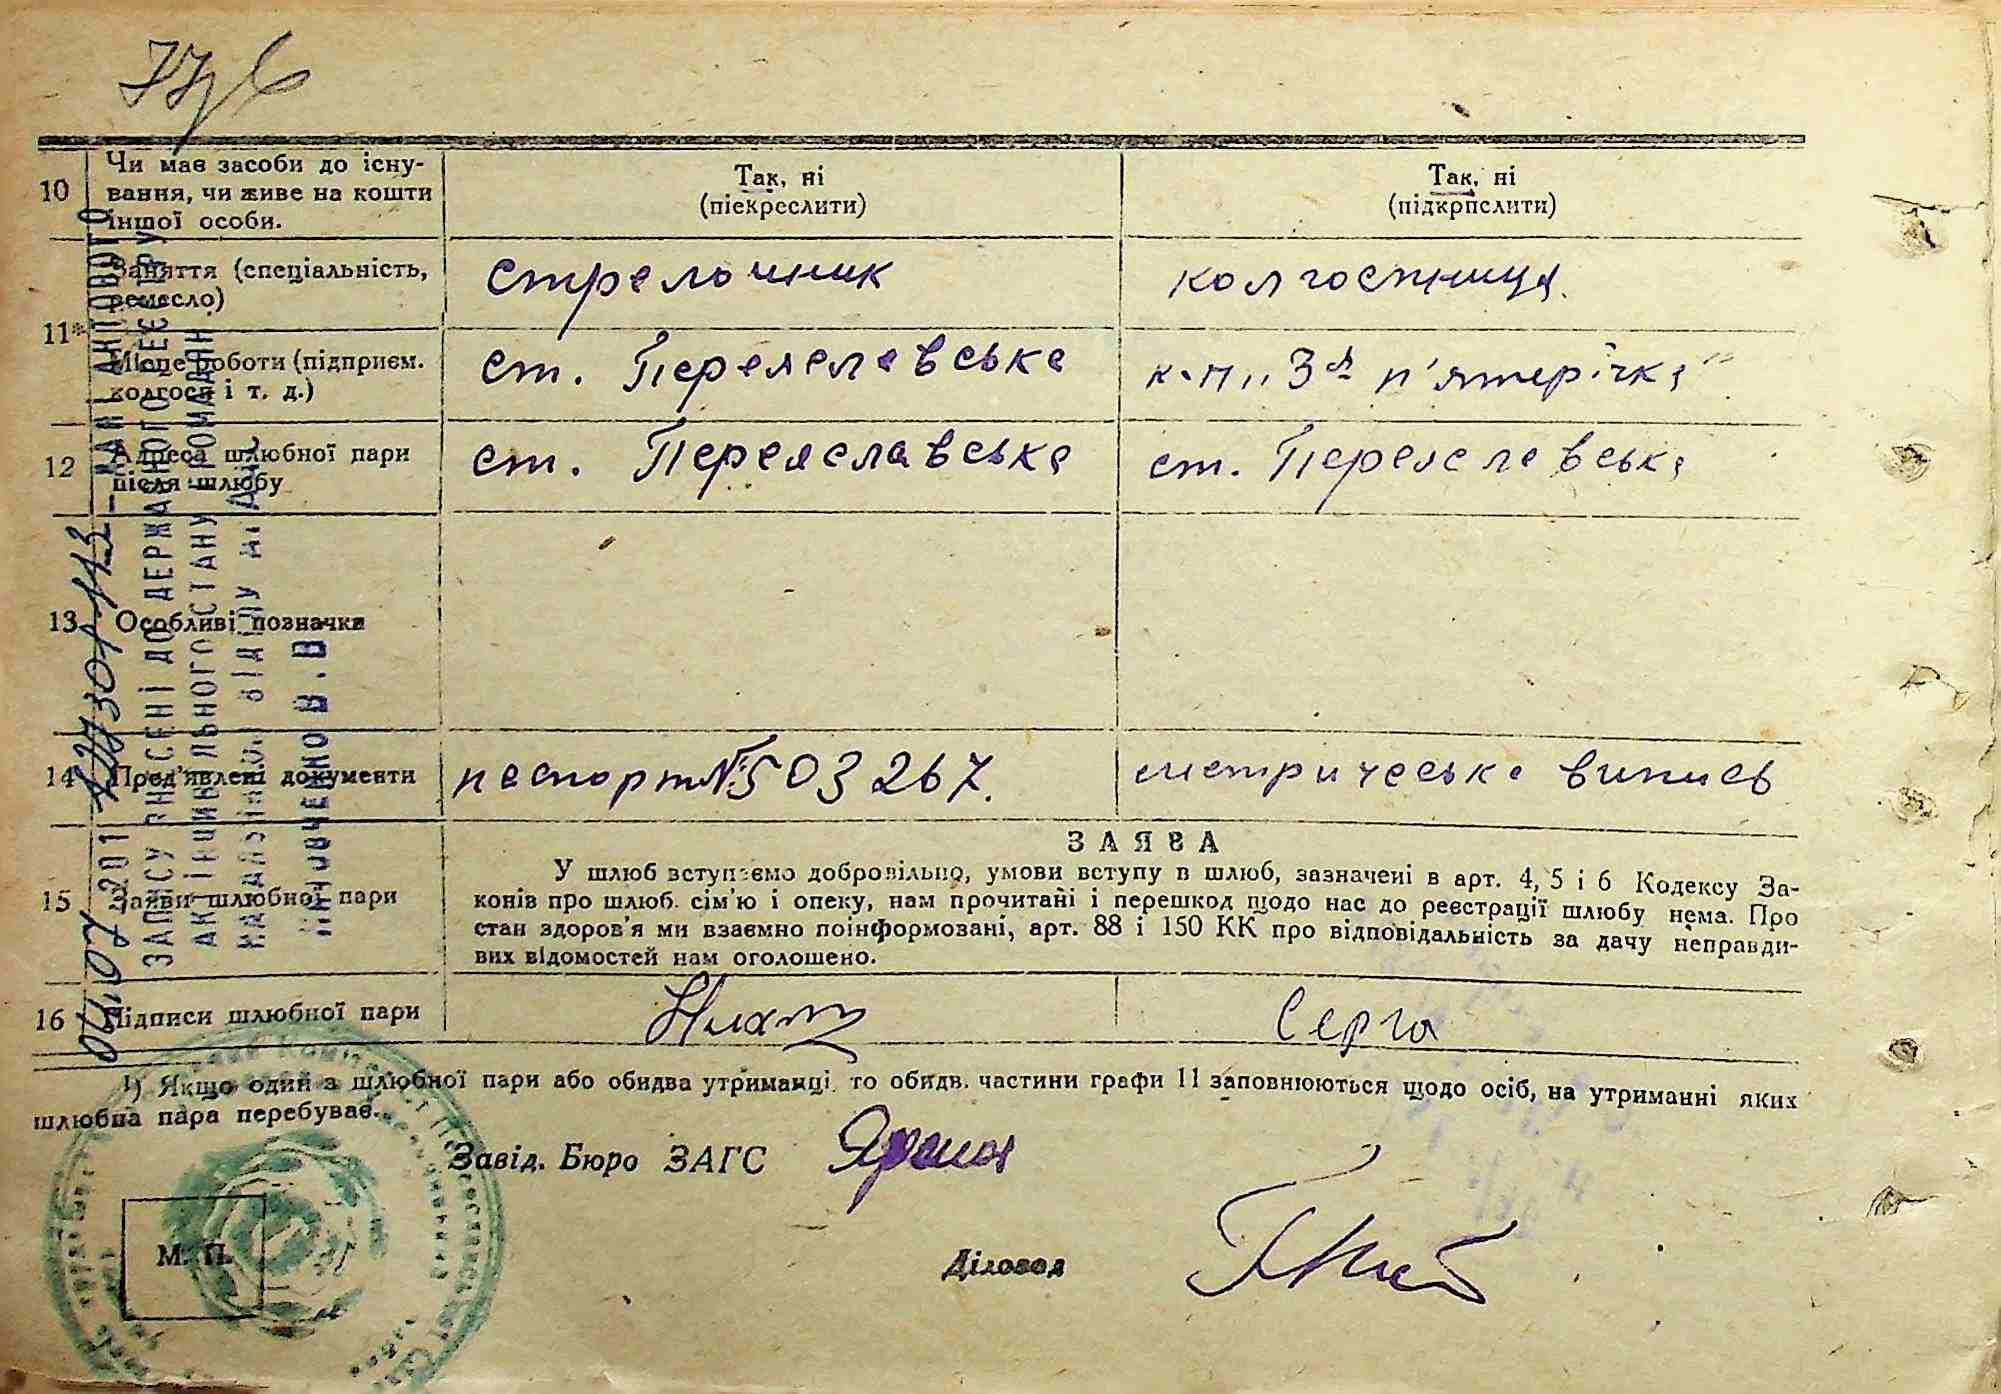 10 Чи має засоби до існу-
вання, чи живе на кошти
іншої особи.
Так, ні
(піекреслити)
Так, ні
(підкрпслити)
11*
Заняття (спеціальність,
ремесло)
стрелочник
колгоспниця.
Місце роботи (підприєм.
колгосп і т. д.)
ст. Переяславська
к-п „3я п'ятерічка"
12 Адреса шлюбної пари
після шлюбу
ст. Переяславська
ст. Переяславська
13 Особливі позначки
14 Пред'явлені документи
паспорт № 503267.
метричеська випись
15 Заяви шлюбної пари
ЗАЯВА
У шлюб вступаємо добровільно, умови вступу в шлюб, зазначені в арт. 4, 5 і 6 Кодексу За-
конів про шлюб. сім'ю і опеку, нам прочитані і перешкод щодо нас до реєстрації шлюбу нема. Про
стан здоров'я ми взаємно поінформовані, арт. 88 і 150 КК про відповідальність за дачу неправди-
вих відомостей нам оголошено.
16 Підписи шлюбної пари
Серга
¹) Якщо один з шлюбної пари або обидва утриманці. то обидв. частини графи 11 заповнюються щодо осіб, на утриманні яких
шлюбна пара перебуває.
Завід. Бюро ЗАГС
Діловод
М. П.
ДАНІ АКТОВОГО
ЗАПИСУ ВНЕСЕНІ ДО ДЕРЖАВНОГО РЕЄСТРУ
АКТІВ ЦИВІЛЬНОГО СТАНУ ГРОМАДЯН